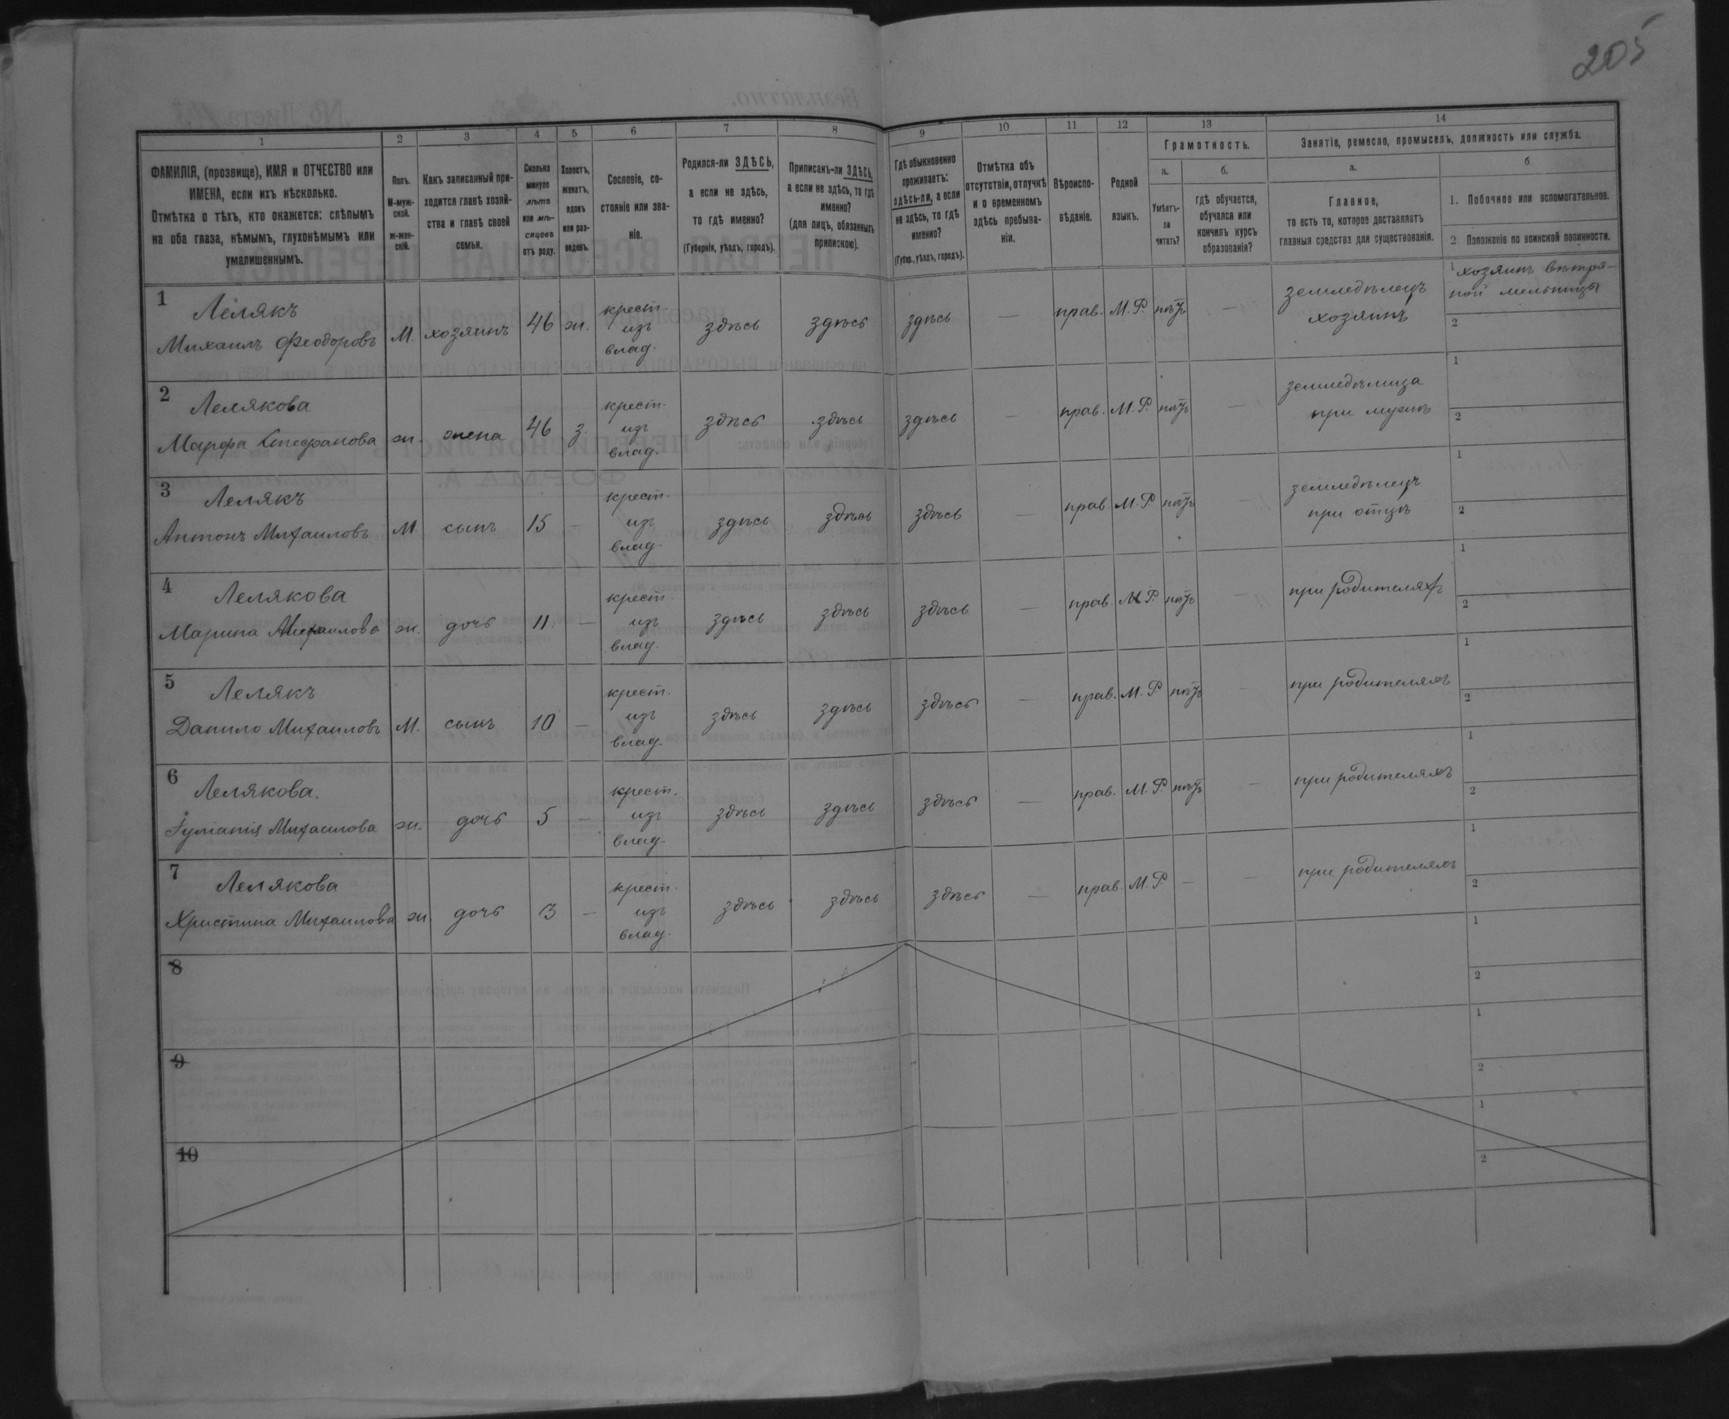 205
1 2 3 4 5 6 7 8 9 10 11 12 13 14
ФАМИЛІЯ, (прозвище), ИМЯ и ОТЧЕСТВО или ИМЕНА, если ихъ нѣсколько.
Отмѣтка о тѣхъ, кто окажется: слѣпымъ на оба глаза, нѣмымъ, глухонѣмымъ или умалишеннымъ.
Полъ. М-мужской. ж-женскій.
Какъ записанный приходится главѣ хозяйства и главѣ своей семьи.
Сколько минуло лѣтъ или мѣсяцевъ отъ роду.
Холостъ, женатъ, вдовъ или разведенъ.
Сословіе, состояніе или званіе.
Родился-ли ЗДѢСЬ, а если не здѣсь, то гдѣ именно?
(Губернія, уѣздъ, городъ).
Приписанъ-ли ЗДѢСЬ, а если не здѣсь, то гдѣ именно?
(для лицъ, обязанныхъ припискою).
Гдѣ обыкновенно проживаетъ: здѣсь-ли, а если не здѣсь, то гдѣ именно?
(Губер., уѣздъ, городъ).
Отмѣтка объ отсутствіи, отлучкѣ и о временномъ здѣсь пребываніи.
Вѣроисповѣданіе.
Родной языкъ.
Грамотность.
а. Умѣетъ-ли читать?
б. Гдѣ обучается, обучался или кончилъ курсъ образованія?
Занятіе, ремесло, промыселъ, должность или служба.
а. Главное, то есть то, которое доставляетъ главныя средства для существованія.
б
1. Побочное или вспомогательное.
2 Положеніе по воинской повинности.
1 Лелякъ
Михаилъ Феодоровъ М. хозяинъ 46 ж. крест. изъ влад. здѣсь здѣсь здѣсь — прав. М.Р. нѣтъ — земледѣлецъ хозяинъ 1 хозяинъ вѣтряной мельницы 2
2 Лелякова
Марфа Стефанова ж. жена 46 з. крест. изъ влад. здѣсь здѣсь здѣсь — прав. М.Р. нѣтъ — земледѣлица при мужѣ 1 2
3 Лелякъ
Антонъ Михаиловъ М. сынъ 15 — крест. изъ влад. здѣсь здѣсь здѣсь — прав М.Р. нѣтъ — земледѣлецъ при отцѣ 1 2
4 Лелякова
Марина Михаилова ж. дочь 11. — крест. изъ влад. здѣсь здѣсь здѣсь — прав. М.Р. нѣтъ — при родителяхъ 1 2
5 Лелякъ
Данило Михаиловъ М. сынъ 10 — крест. изъ влад. здѣсь здѣсь здѣсь — прав. М.Р нѣтъ — при родителяхъ 1 2
6 Лелякова.
Михаилова ж. дочь 5 — крест. изъ влад. здѣсь здѣсь здѣсь — прав. М.Р нѣтъ — при родителяхъ 1 2
7 Лелякова
Христина Михаилова ж. дочь 3 — крест. изъ влад. здѣсь здѣсь здѣсь — прав. М.Р — — при родителяхъ 1 2
8 1 2
9 1 2
10 1 2